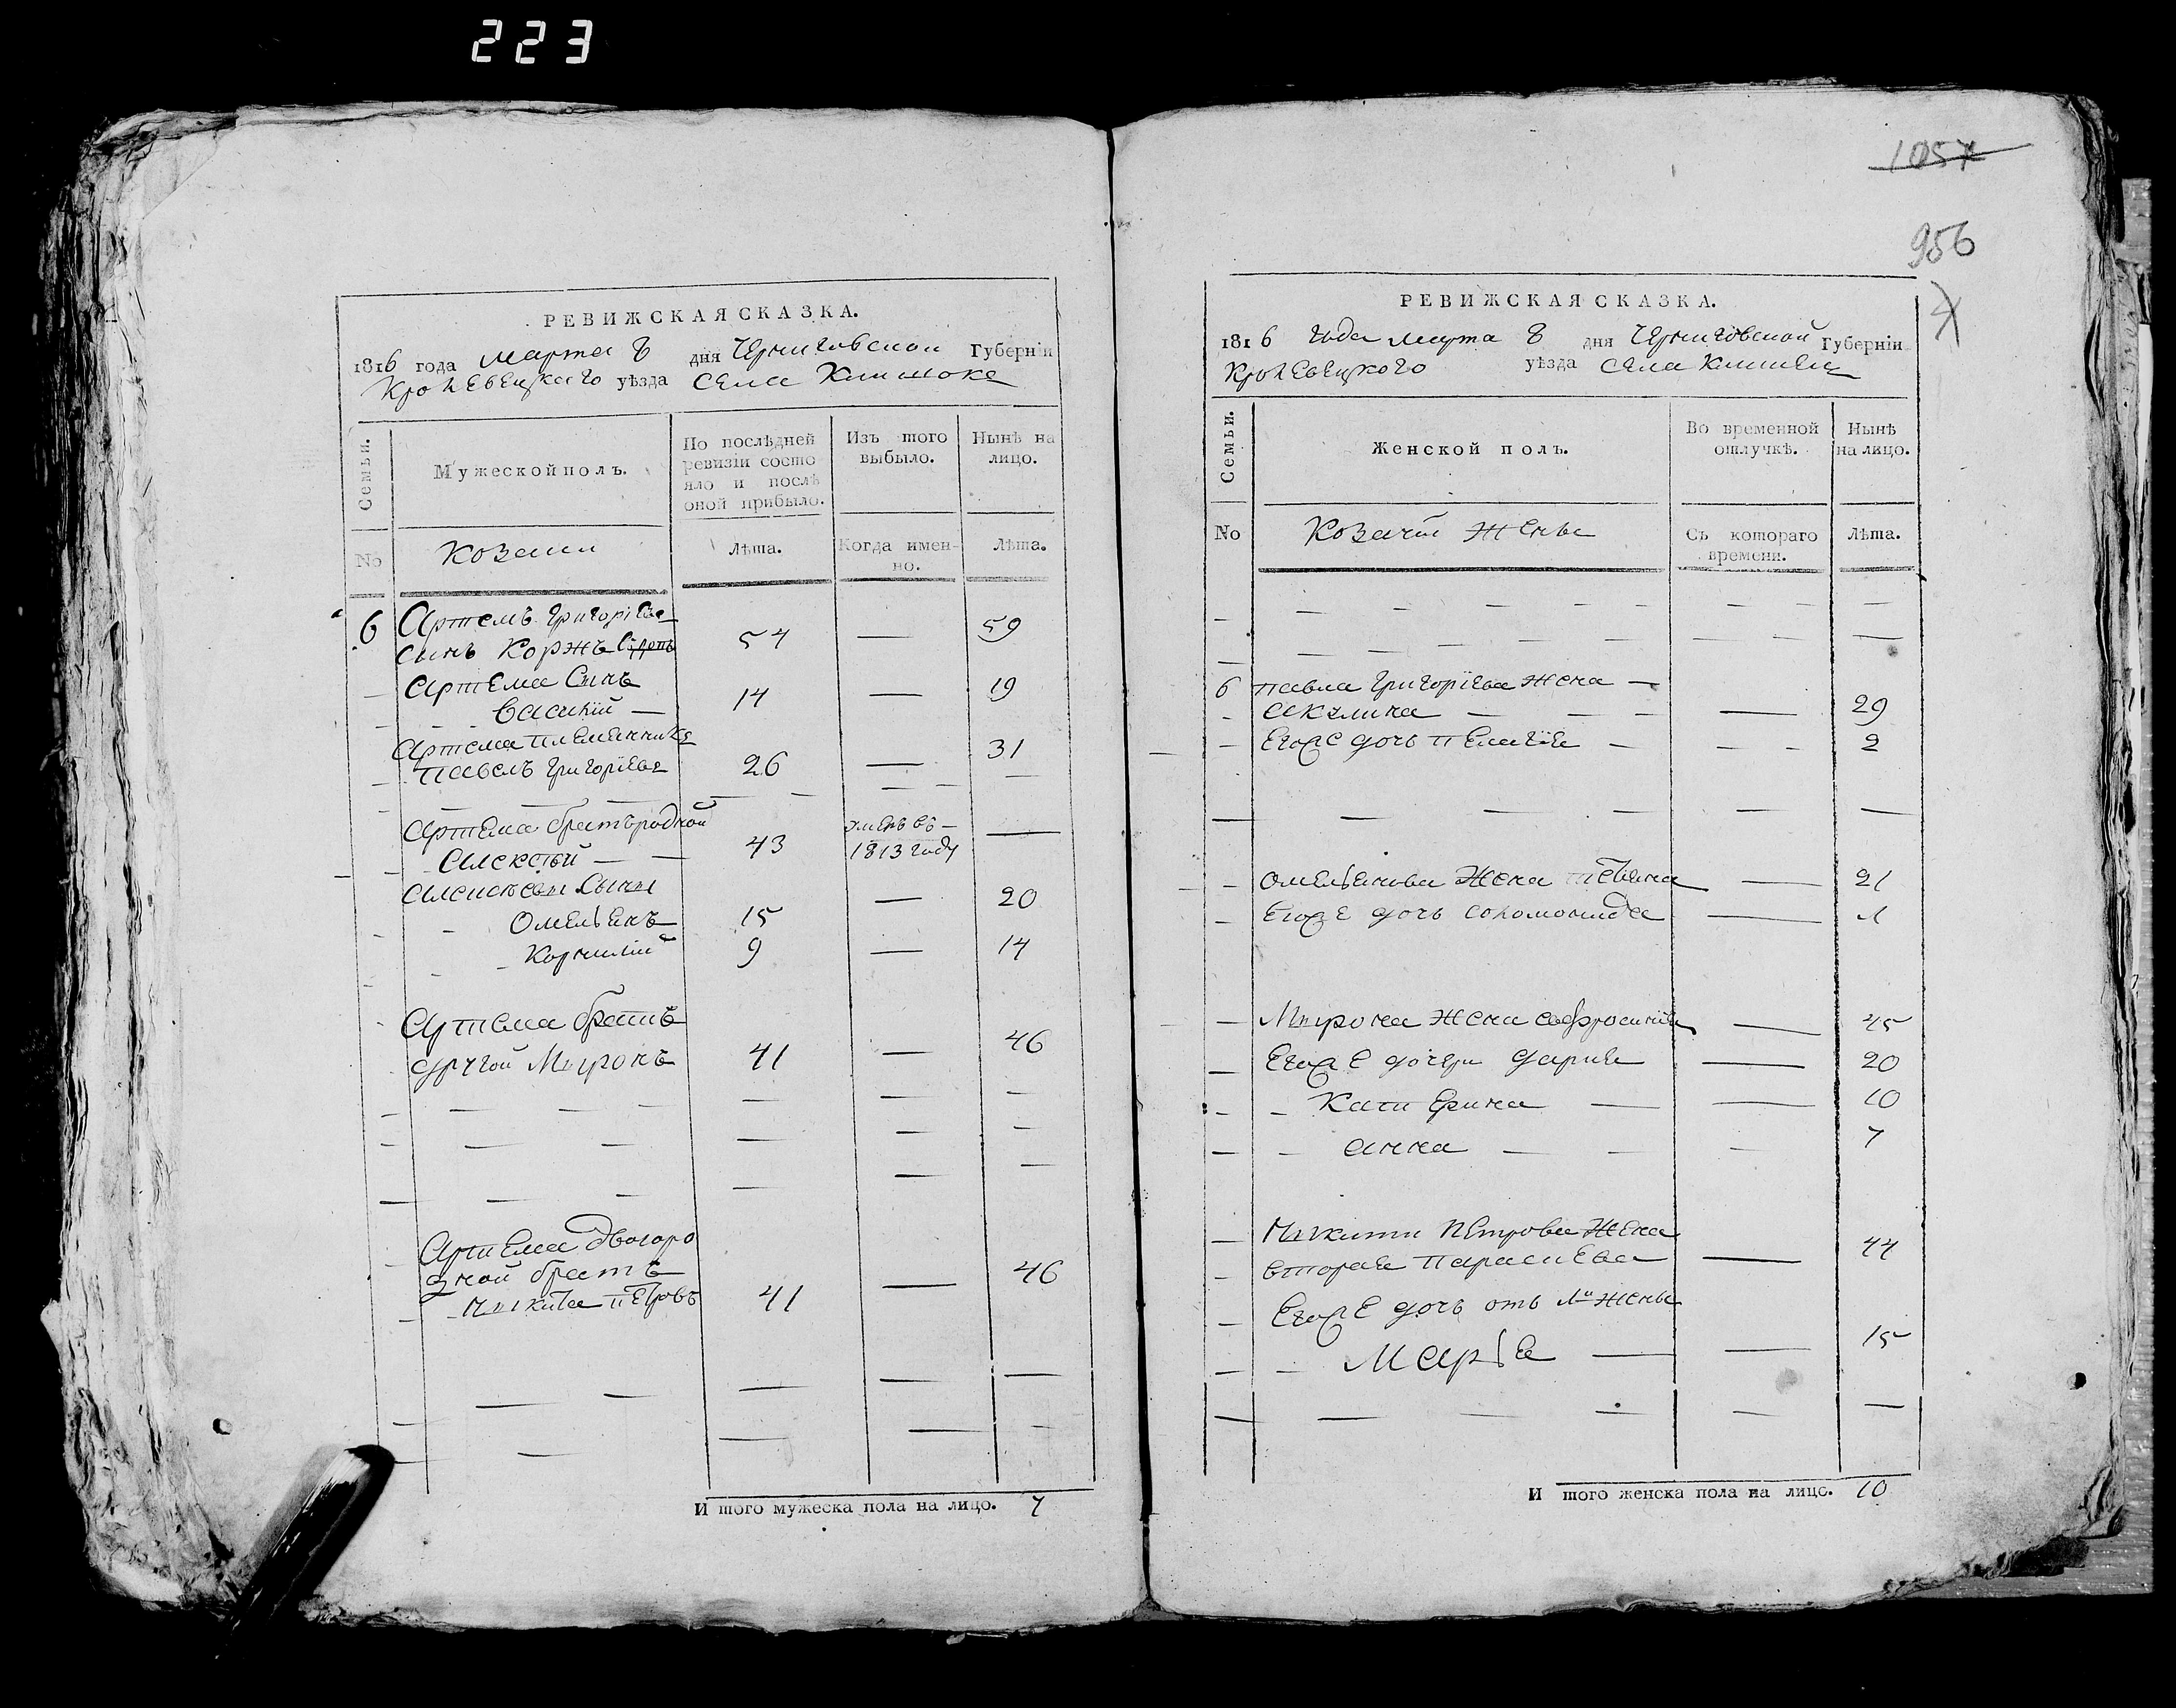 223
1057
956
РЕВИЖСКАЯ СКАЗКА.
1816 года Марта 8 дня Черниговской Губерніи
Кролевецкаго уѣзда села
Семьи.
Мужеской полъ.
По послѣдней ревизіи состояло и послѣ оной прибыло.
Изъ того выбыло.
Нынѣ на лицо.
No
Козаки
Лѣта.
Когда именно.
Лѣта.
6 Артемъ Григоріевъ
сынъ Коржъ 54 — 59
Артема Сынъ
Василій — 14 — 19
Артема племенникъ
Павелъ Григоріевъ 26 — 31
Артема братъ родной умеръ въ —
Алексѣй — — 43 1813 году —
Алексѣеви Сыни
Омелянъ 15 — 20
Корнилій 9 — 14
Артема братъ
другой Миронъ 41 — 46
Артема двоюро
дной братъ
Микита Петровъ 41 — 46
И того мужеска пола на лицо. 7
РЕВИЖСКАЯ СКАЗКА.
1816 года Марта 8 дня Черниговской Губерніи
Кролевецкого уѣзда села
Семьи.
Женской полъ.
Во временной отлучкѣ.
Нынѣ на лицо.
No
Козачіи Жены
Съ котораго времени.
Лѣта.
6 Павла Григоріева Жена —
Акулина — — — 29
Егоже дочь Пелагія — 2
Омелянова Жена Тетяна — 21
Егоже дочь Соломонида — 1
Мирона Жена Евфросинія — 45
Егоже дочери Дарія — 20
Катерина — — 10
Анна — — 7
Микити Петрова Жена
вторая Парасчева — 44
Егоже дочь отъ 1й Жены
Марія — — 15
И того женска пола на лицо. 10